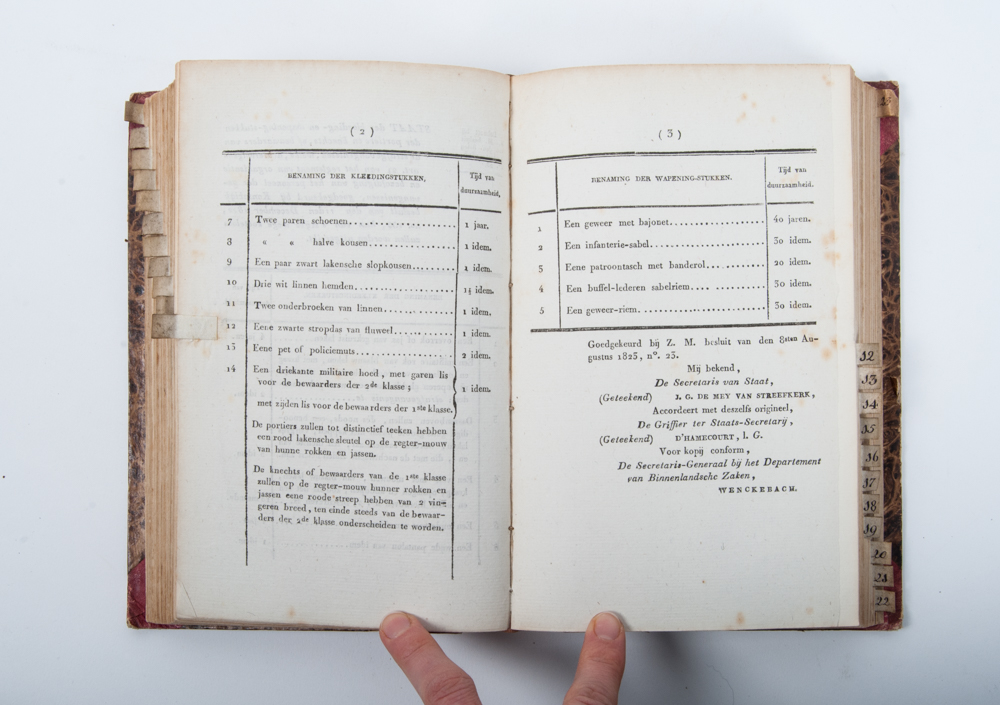 ( 2 )
BENAMING DER KLEEDINGSTUKKEN,
Tijd van
duurzaamheid.
7 Twee paren schoenen.................... 1 jaar.
8 « « halve kousen.................. 1 idem.
9 Een paar zwart lakensche slopkousen......... 1 idem.
10 Drie wit linnen hemden.................... 1½ idem.
11 Twee onderbroeken van linnen.............. 1 idem.
12 Eene zwarte stropdas van fluweel............ 1 idem.
13 Eene pet of policiemuts.................... 2 idem.
14 Een driekante militaire hoed, met garen lis
voor de bewaarders der 2de klasse; 1 idem.
met zijden lis voor de bewaarders der 1ste klasse.
De portiers zullen tot distinctief teeken hebben
een rood lakensche sleutel op de regter-mouw
van hunne rokken en jassen.
De knechts of bewaarders van de 1ste klasse
zullen op de regter-mouw hunner rokken en
jassen eene roode streep hebben van 2 vin-
geren breed, ten einde steeds van de bewaar-
ders der 2de klasse onderscheiden te worden.
( 3 )
BENAMING DER WAPENING-STUKKEN.
Tijd van
duurzaamheid.
1 Een geweer met bajonet.................... 40 jaren.
2 Een infanterie-sabel........................ 30 idem.
3 Eene patroontasch met banderol............. 20 idem.
4 Een buffel-lederen sabelriem................ 30 idem.
5 Een geweer-riem........................... 30 idem.
Goedgekeurd bij Z. M. besluit van den 8sten Au-
gustus 1823, n°. 23.
Mij bekend,
De Secretaris van Staat,
(Geteekend) J. G. DE MEY VAN STREEFKERK,
Accordeert met deszelfs origineel,
De Griffier ter Staats-Secretarij,
(Geteekend) D'HAMECOURT, l. G.
Voor kopij conform,
De Secretaris-Generaal bij het Departement
van Binnenlandsche Zaken,
WENCKEBACH.
12
13
14
15
16
17
18
19
20
21
22